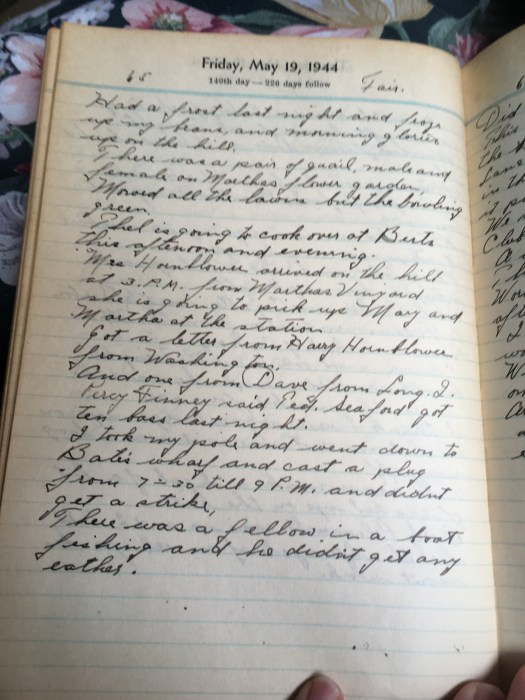 Friday, May 19, 1944
140th day — 226 days follow
68
Fair.
Had a frost last night and froze
up my beans, and morning glories
up on the hill.
There was a pair of quail, male and
female on Marthas flower garden.
Mowed all the lawns but the bowling
green.
Thel is going to cook over at Berts
this afternoon and evening.
Mrs Hornblower arrived on the hill
at 3. P.M. from Marthas Vinyard
she is going to pick up Mary and
Martha at the station
Got a letter from Harry Hornblower
from Washington.
And one from Dave from Long. I.
Percy Finney said Ted. Seaford got
ten bass last night.
I took my pole and went down to
Bates wharf and cast a plug
from 7-30 till 9 P.M. and didnt
get a strike,
There was a fellow in a boat
fishing and he didnt get any
eather.
Did
the